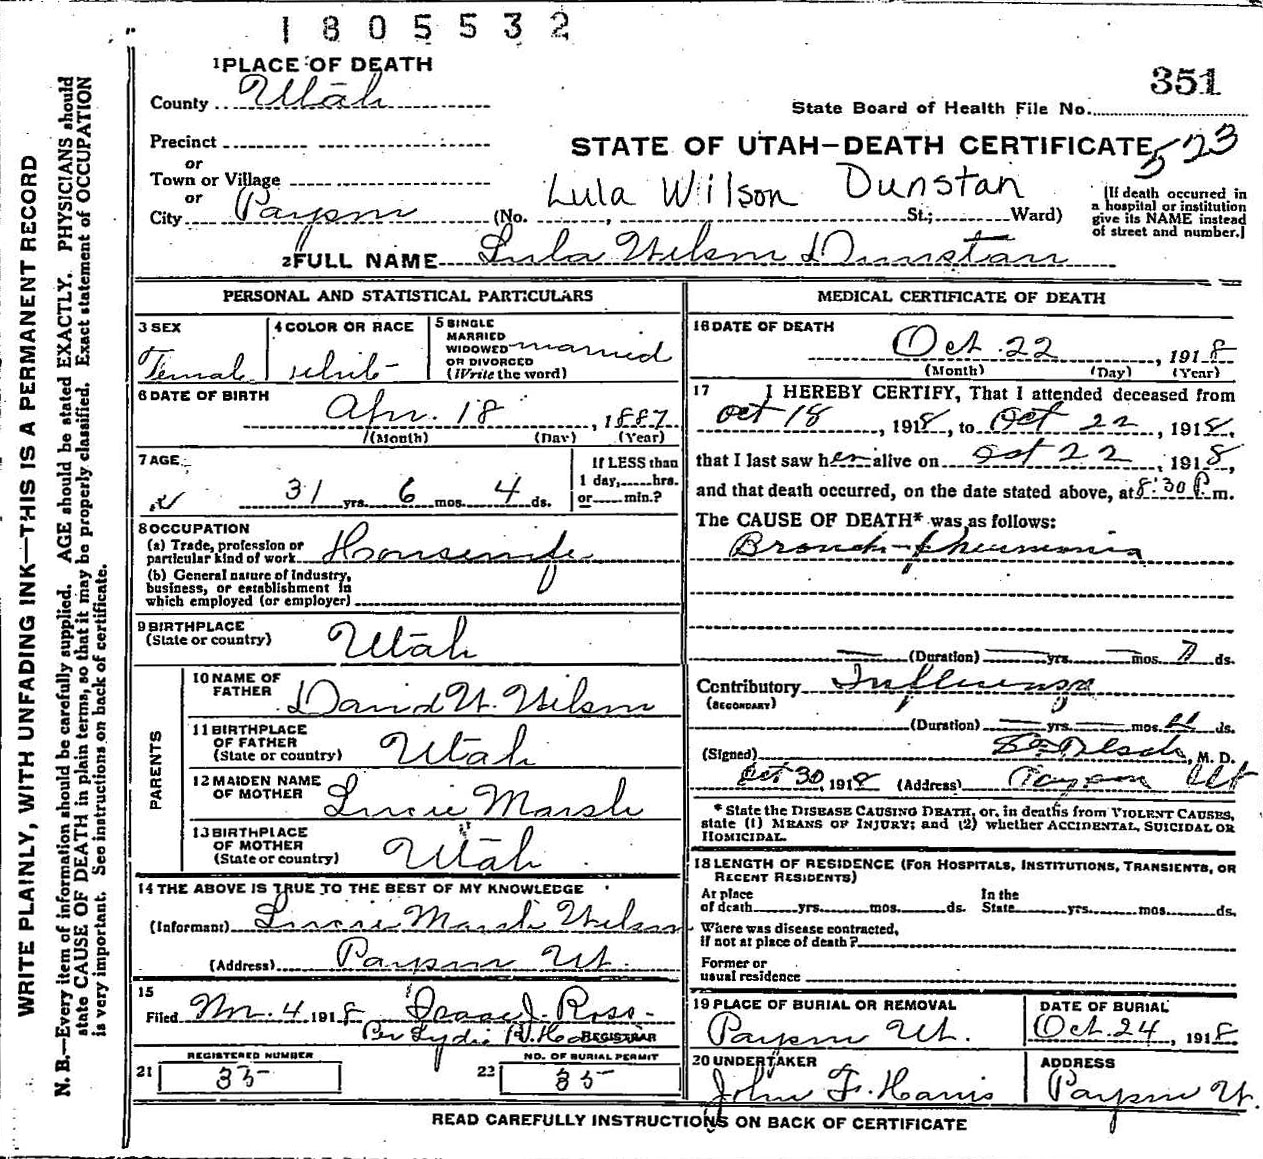 1805532
351
1 PLACE OF DEATH
County Utah
State Board of Health File No.
Precinct
STATE OF UTAH—DEATH CERTIFICATE 523
or
Town or Village
or
Lula Wilson Dunstan
City Payson (No. , St.; Ward)
[If death occurred in
a hospital or institution
give its NAME instead
of street and number.]
2 FULL NAME Lula Wilson Dunstan
PERSONAL AND STATISTICAL PARTICULARS
3 SEX
Female
4 COLOR OR RACE
White
5 SINGLE
MARRIED
WIDOWED
OR DIVORCED
(Write the word)
married
6 DATE OF BIRTH
Apr. 18, 1887
(Month) (Day) (Year)
7 AGE
31 yrs. 6 mos. 4 ds.
If LESS than
1 day, hrs.
or min.?
8 OCCUPATION
(a) Trade, profession or
particular kind of work Housewife
(b) General nature of Industry,
business, or establishment in
which employed (or employer)
9 BIRTHPLACE
(State or country) Utah
PARENTS
10 NAME OF
FATHER David W. Wilson
11 BIRTHPLACE
OF FATHER
(State or country) Utah
12 MAIDEN NAME
OF MOTHER Lucie Marsh
13 BIRTHPLACE
OF MOTHER
(State or country) Utah
14 THE ABOVE IS TRUE TO THE BEST OF MY KNOWLEDGE
(Informant) Lucie Marsh Wilson
(Address) Payson Ut.
15
Filed Nov. 4 1918 Isaac J. Ross
Per Lydia REGISTRAR
REGISTERED NUMBER
21 35
NO. OF BURIAL PERMIT
22 35
MEDICAL CERTIFICATE OF DEATH
16 DATE OF DEATH
Oct. 22, 1918
(Month) (Day) (Year)
17 I HEREBY CERTIFY, That I attended deceased from
Oct 18, 1918, to Oct 22, 1918,
that I last saw her alive on Oct 22, 1918,
and that death occurred, on the date stated above, at 8:30 P. m.
The CAUSE OF DEATH* was as follows:
Bronch-pneumonia
(Duration) yrs. mos. 7 ds.
Contributory Influenza
(SECONDARY)
(Duration) yrs. mos. ds.
(Signed) , M. D.
Oct 30, 1918 (Address) Payson Ut
* State the DISEASE CAUSING DEATH, or, in deaths from VIOLENT CAUSES,
state (1) MEANS OF INJURY; and (2) whether ACCIDENTAL, SUICIDAL OR
HOMICIDAL.
18 LENGTH OF RESIDENCE (FOR HOSPITALS, INSTITUTIONS, TRANSIENTS, OR
RECENT RESIDENTS)
At place
of death yrs. mos. ds.
In the
State yrs. mos. ds.
Where was disease contracted,
if not at place of death?
Former or
usual residence
19 PLACE OF BURIAL OR REMOVAL
Payson Ut.
DATE OF BURIAL
Oct. 24, 1918
20 UNDERTAKER
John F. Harris
ADDRESS
Payson Ut.
READ CAREFULLY INSTRUCTIONS ON BACK OF CERTIFICATE
WRITE PLAINLY, WITH UNFADING INK—THIS IS A PERMANENT RECORD
N. B.—Every item of information should be carefully supplied. AGE should be stated EXACTLY. PHYSICIANS should
state CAUSE OF DEATH in plain terms, so that it may be properly classified. Exact statement of OCCUPATION
is very important. See instructions on back of certificate.